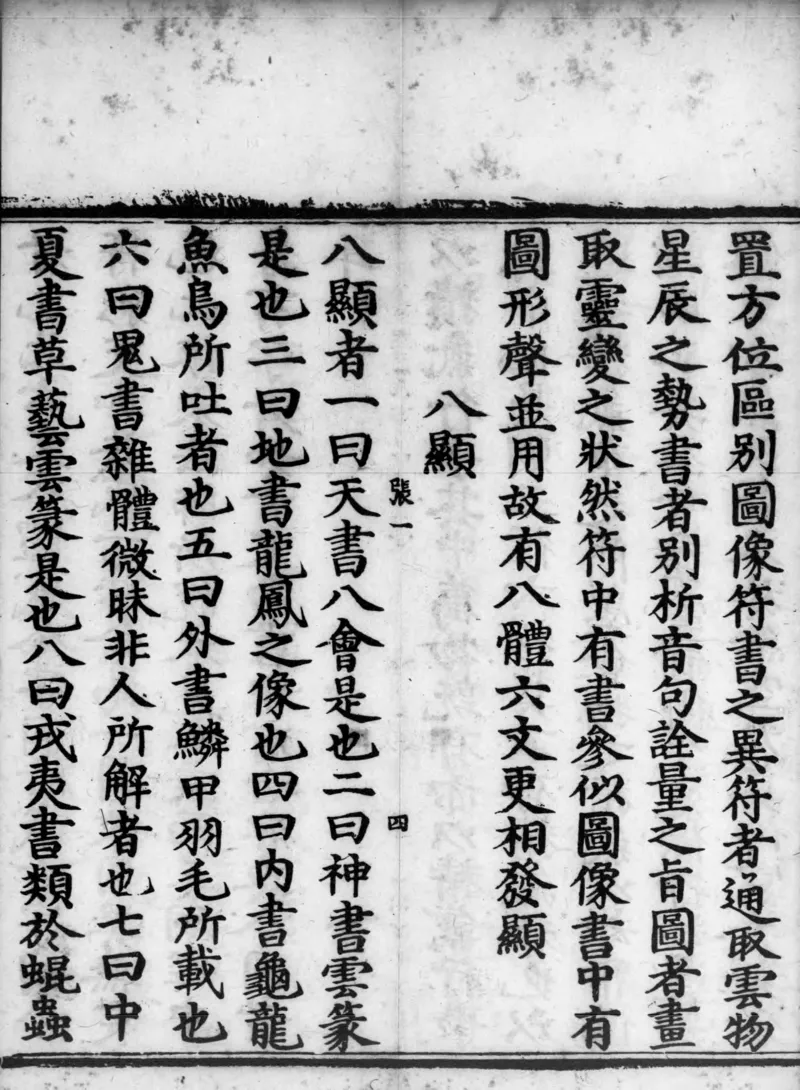 置方位區別圖像符書之異符者通取雲物
星辰之勢書者別析音句詮量之旨圖者畫
取靈變之狀然符中有書參似圖像書中有
圖形聲並用故有八體六文更相發顯
八顯
張一
四
八顯者一曰天書八會是也二曰神書雲篆
是也三曰地書龍鳳之像也四曰內書龜龍
魚鳥所吐者也五曰外書鱗甲羽毛所載也
六曰鬼書雜體微昧非人所解者也七曰中
夏書草藝雲篆是也八曰戎夷書類於蜫蟲